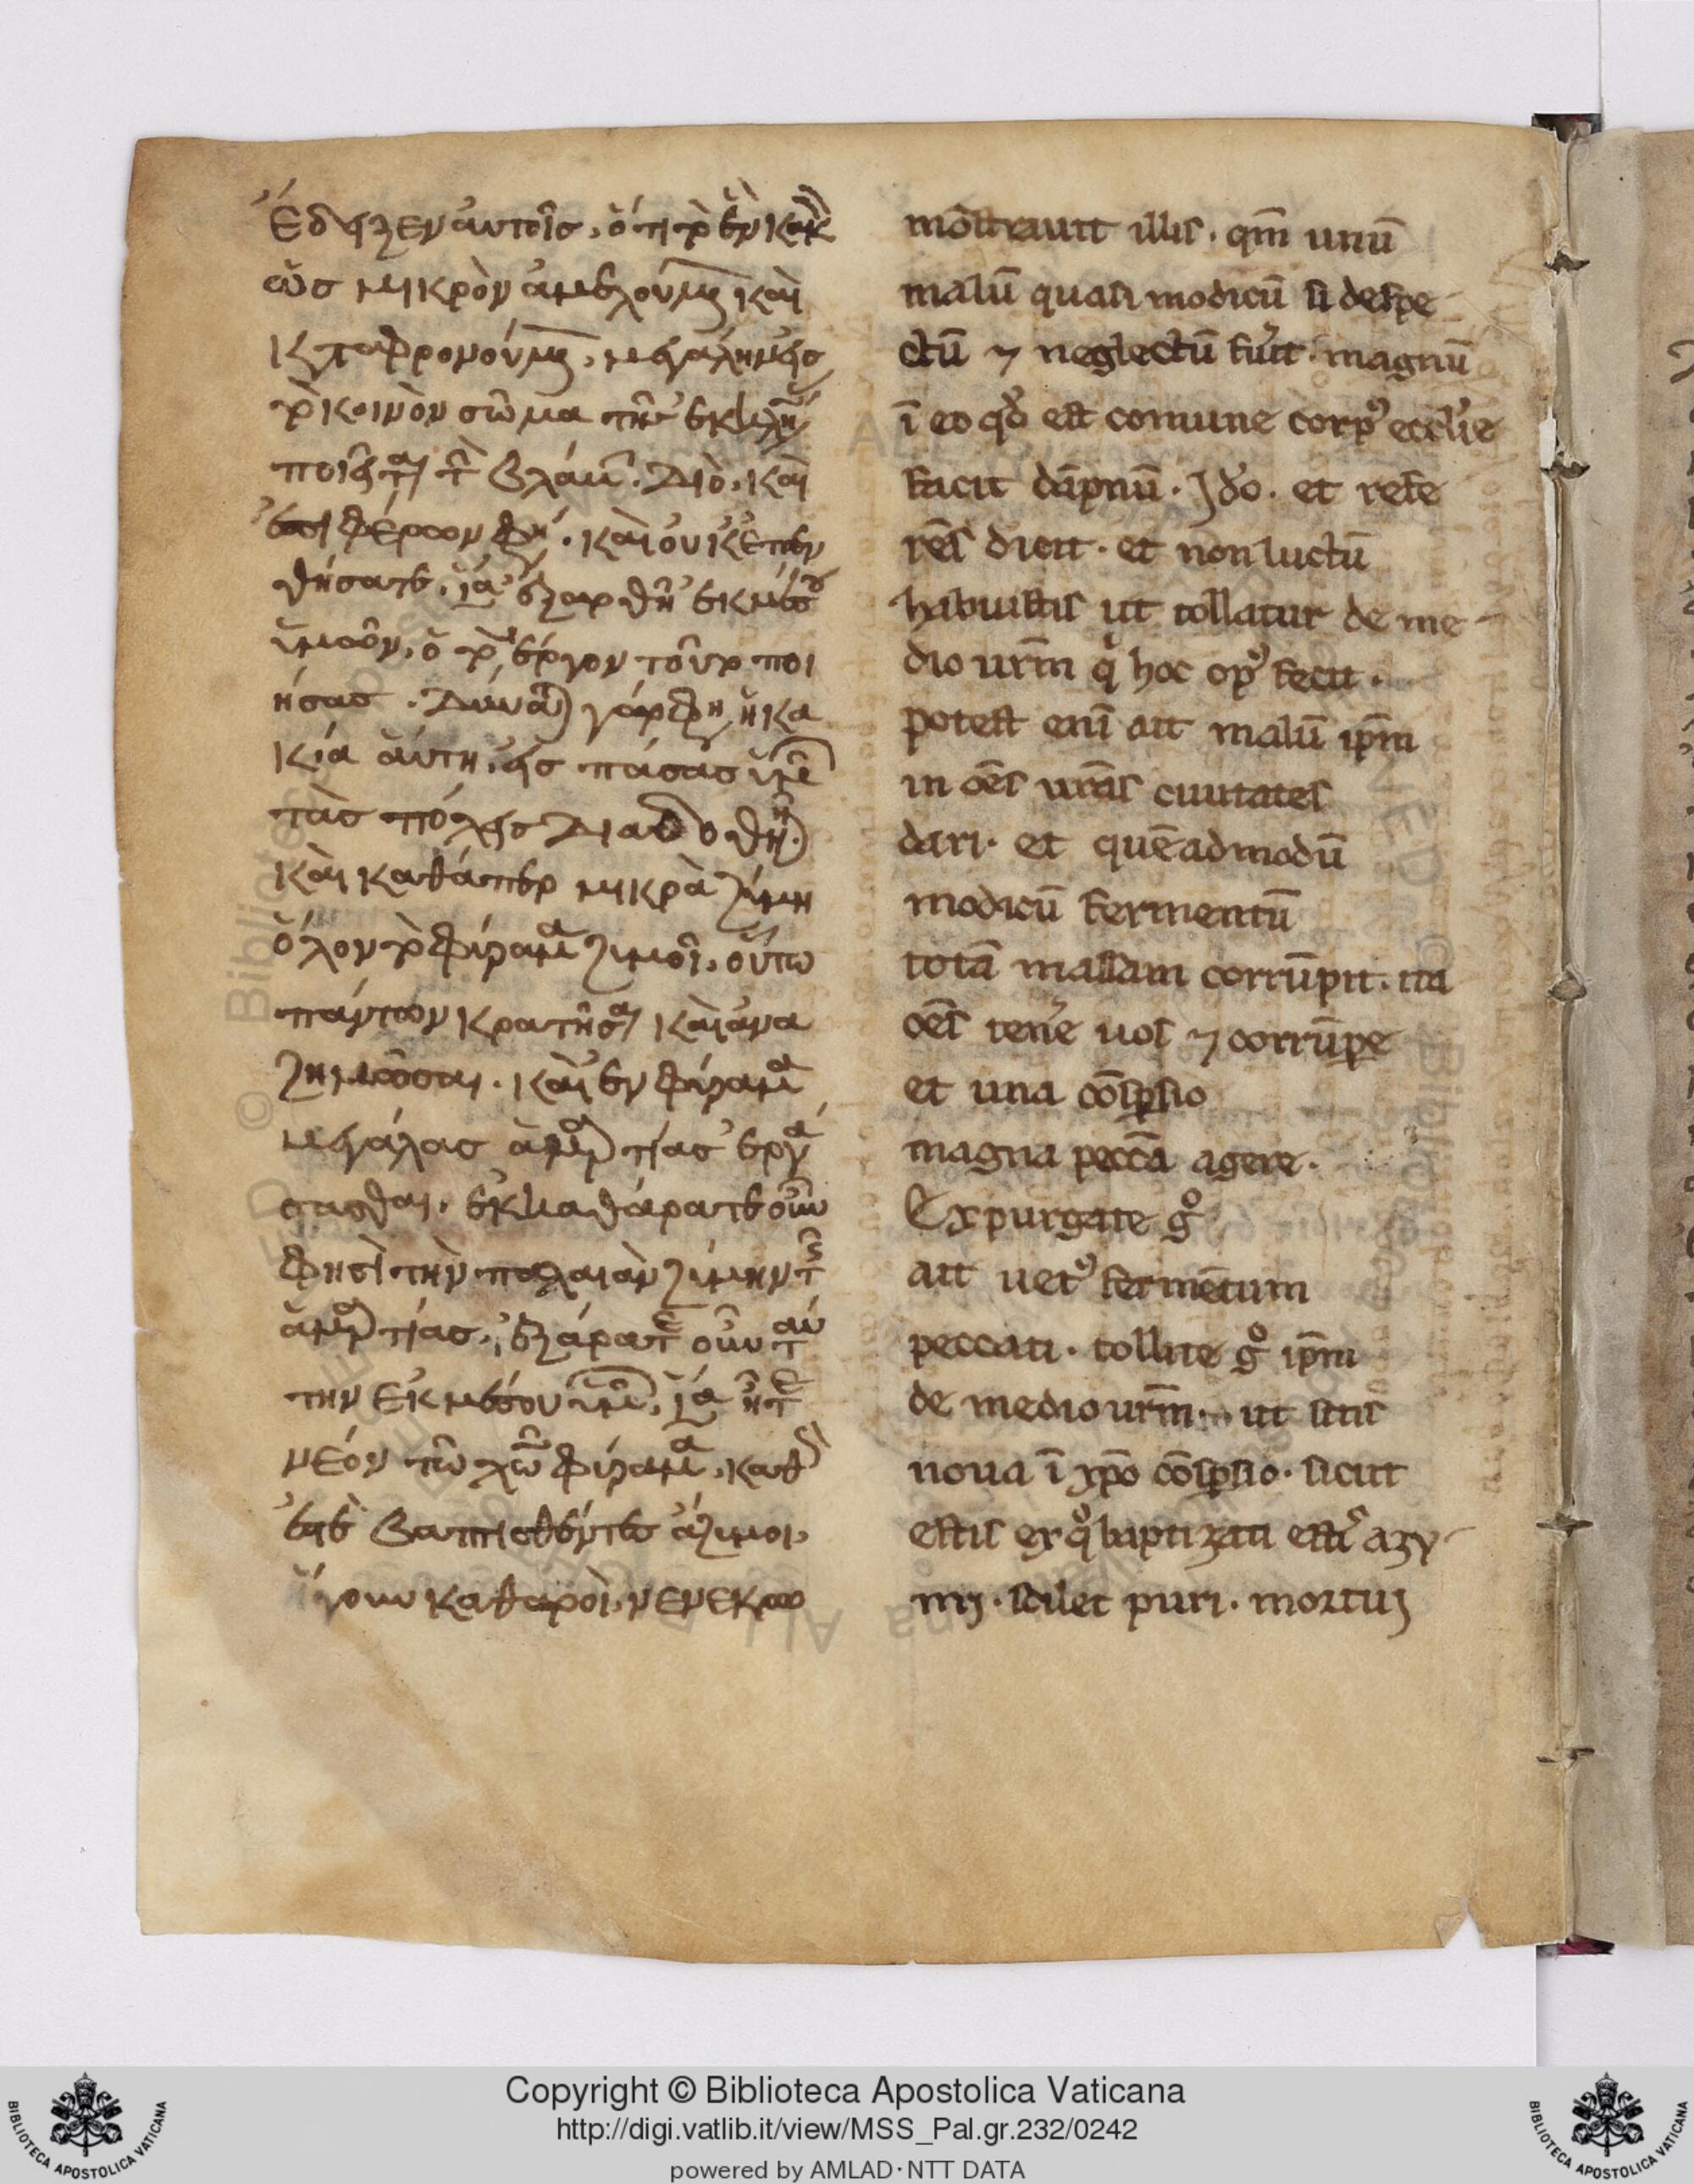 ἔδειξεν αὐτοῖς, ὅτι τὸ ἓν κακὸν
ὡς μικρὸν ἀμελούμενον καὶ
καταφρονούμενον, μεγάλην εἰς
τὸ κοινὸν σῶμα τῆς ἐκκλησίας
ποιεῖται τὴν βλάβην. Διὸ, καὶ
ἐπιφέρων φησί. καὶ οὐκ ἐπεν
θήσατε, ἵνα ἐξαρθῇ ἐκ μέσου
ὑμῶν, ὁ τὸ ἔργον τοῦτο ποι
ήσας. Δύναται γάρ φησιν ἡ κα
κία αὕτη, εἰς πάσας ὑμῶν
τὰς πόλεις διαδοθῆναι
καὶ καθάπερ μικρὰ ζύμη
ὅλον τὸ φύραμα ζυμοῖ, οὕτω
πάντων κρατῆσαι καὶ ἀνα
ζυμῶσαι. καὶ ἓν φύραμα
μεγάλας ἁμαρτίας ἐργά
σασθαι. ἐκκαθάρατε οὖν
φησὶ τὴν παλαιὰν ζύμην τῆς
ἁμαρτίας, ἐξάρατε οὖν αὐ
τὴν ἐκ μέσου ὑμῶν, ἵνα ἦτε
νέον τῷ χῶ φύραμα, καθὼς
ἐστὲ βαπτισθέντες ἄζυμοι,
ἤγουν καθαροὶ, νενεκρω
mo̅strauit illis. qm̅ unu̅
malu̅ quasi modicu̅ si despe-
ctu̅ ⁊ neglectu̅ fu̓it. magnu̅
i̅ eo qḋ est comune corpꝰ eccl̓ie
facit da̅pnu̅. Jdo. et refe
re̅s dicit. et non luctu̅
habuistis ut tollatur de me-
dio ur̅m q̇ hoc opꝰ fecit.
potest eni̅ ait malu̅ ip̅m
in oe̅s ur̅as ciuitates
dari. et que̅admodu̅
modicu̅ fermentu̅
tota̅ massam corru̅pit. ita
oe̅s tene̓ uos ⁊ corru̅pe
et una co̅spsio
magna pecca̅ agere.
Expurgate gͦ
ait uetꝰ ferme̅tum
peccati. tollite gͦ ip̅m
de medio ur̅m. ut sitis
noua i̅ xp̅o co̅spsio. sicut
estis ex qͦ baptizati esti̓ azy-
mj. scilet puri. mortuj
Copyright © Biblioteca Apostolica Vaticana
http://digi.vatlib.it/view/MSS_Pal.gr.232/0242
powered by AMLAD·NTT DATA
BIBLIOTECA APOSTOLICA VATICANA
BIBLIOTECA APOSTOLICA VATICANA